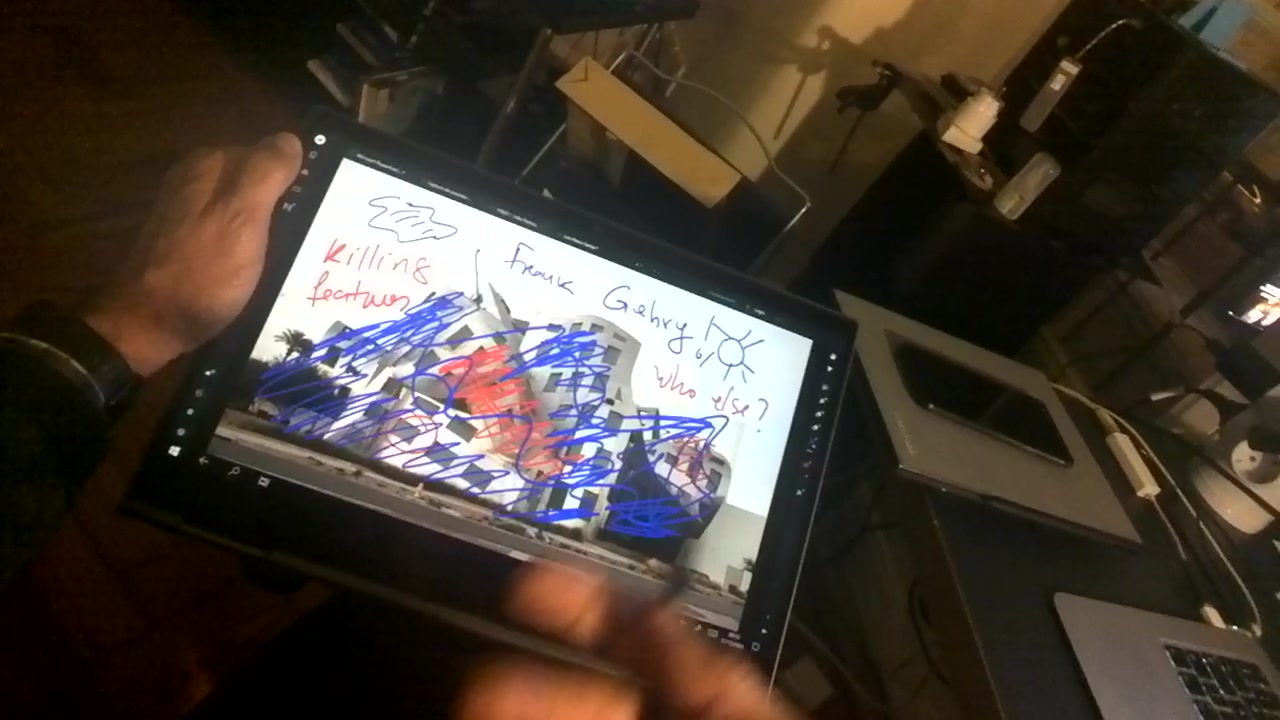 Killing
features
Frank Gehry
who else?